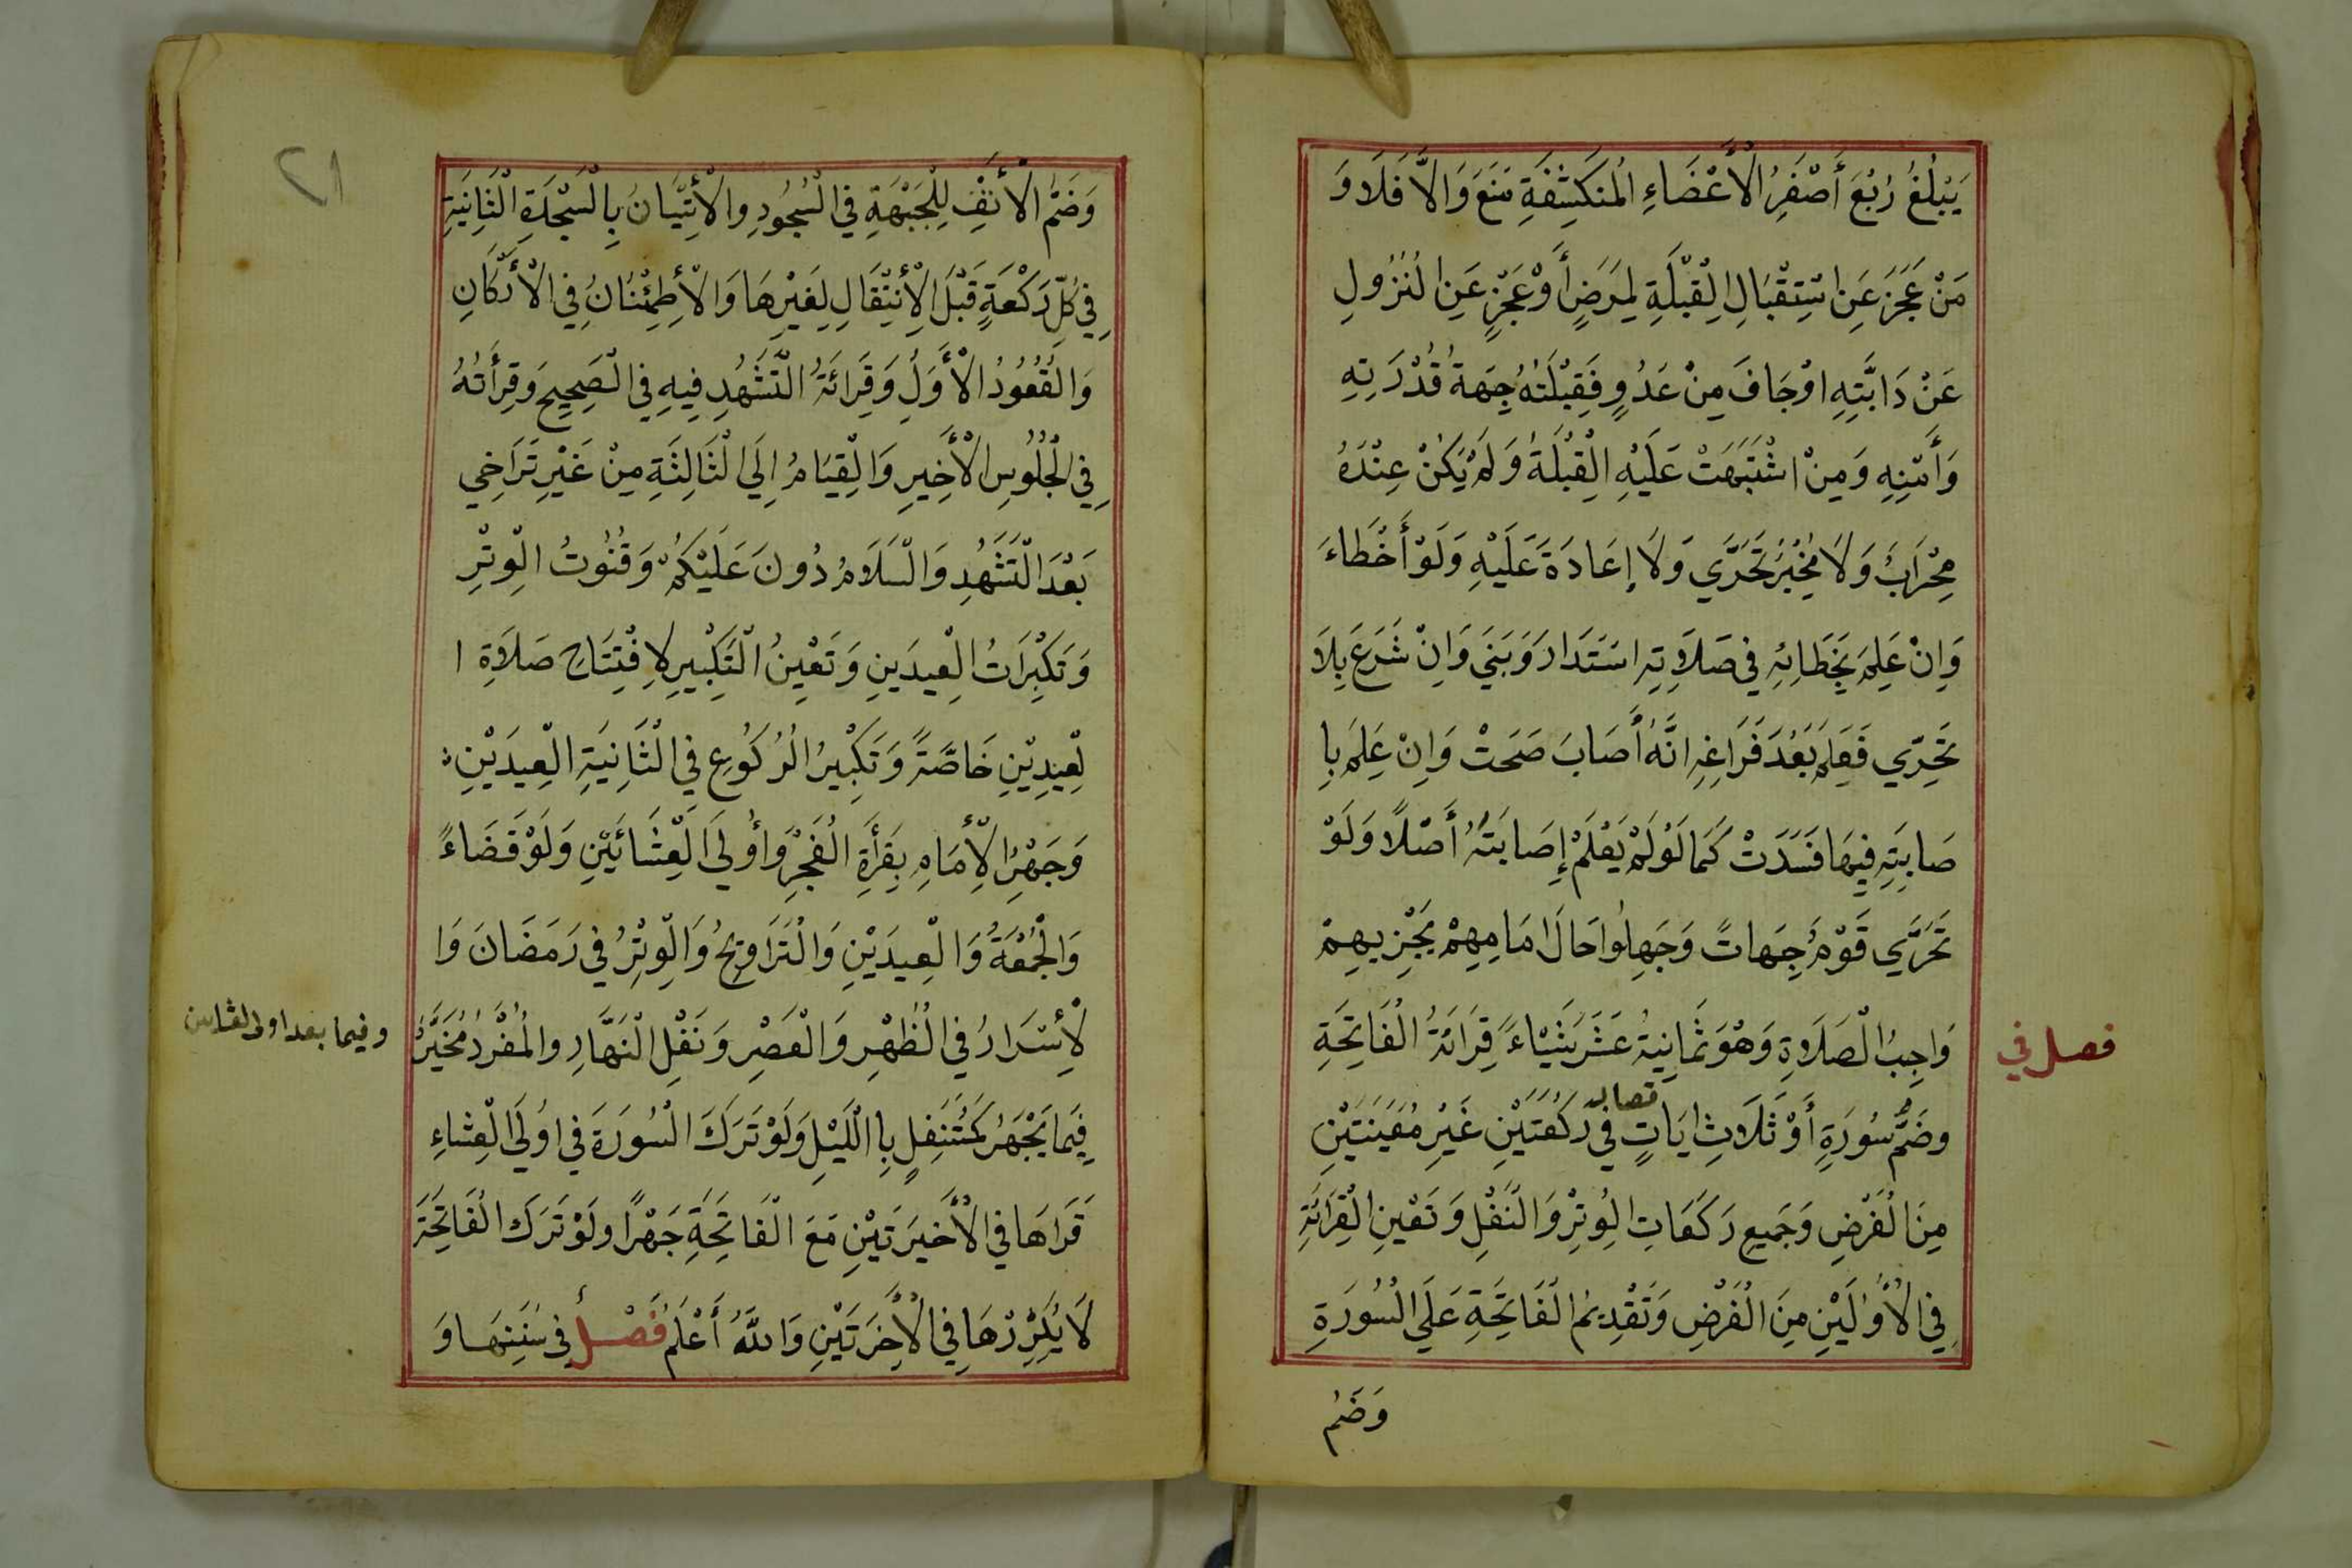 يَبْلُغُ رُبْعَ أَصْغَرُ الْأَعْضَاءِ الْمُنكَشِفَةِ مَنَعَ وَالَّا فَلَا وَ
مَنْ عَجَزَ عَنِ اسْتِقْبَالِ الْقِبْلَةِ لِمَرَضٍ أَوْ عَجْزٍ عَنِ النُزُولِ
عَنْ دَابَّتِهِ اوْ خَافَ مِنْ عَدُوٍ فَقِبْلَتُهُ جِهَةُ قُدْرَتِهِ
وَأَمْنِهِ وَمِنْ اشْتَبَهَتْ عَلَيْهِ الْقِبْلَةُ وَلَمْ يَكُنْ عِنْدَهُ
مِحْرَابَ وَلَا مُخْبِرُ تَحَرَّي وَلَا إِعَادَةَ عَلَيْهِ وَلَوْ أَخْطَاءَ
وَاِنْ عَلِمَ بِخَطَائِهِ فِي صَلَاتِهِ اسْتَدَارَ وَبَنَي وَاِنْ شَرَعَ بِلَا
تَحَرِّي فَعَلِمَ بَعْدَ فَرَاغِهِ انَّهُ أَصَابَ صَحَتْ وَاِنْ عَلِمَ بِا
صَابِتِهِ فِيهَا فَسَدَتْ كَمَا لَوْ لَمْ يَعْلَمْ إِصَابَتَهُ أَصْلًا وَلَوْ
تَحَرَّي قَوْمٌ جِهَاتً وَجَهِلُوا حَالَ امَامِهِمْ يَجْزِيهِمْ
فصل في
وَاجِبُ الْصَلَاةِ وَهُوَ ثَمَانِيَةُ عَشَرَ شَيْاءً قِرَائَةُ الْفَاتِحَةِ
وضَمُّ سُورَةٍ أَوْ ثَلَاثِ ايَاتٍ فِي رَكْعَتَيْنِ غَيْرِ مُعَيَنَتَيْنِ
مِنَ الْفَرْضِ وَجَمِيعِ رَكَعَاتِ الْوِتْرِ وَالنَفْلِ وَتَعْيِينِ الْقِرَائَةِ
فِي الْأُولَيَيْنِ مِنَ الْفَرْضِ وَتَقْدِيمُ الْفَاتِحَةِ عَلَي السُورَةِ
وَضَمُ
٢١
وَضَمُّ الْأَنَفِ لِلْجَبْهَةِ فِي السُجُودِ وِالْأِتِيَانُ بِالْسَجْدَةِ الْثَانِيَةِ
فِي كُلِّ رَكْعَةٍ قَبْلَ الْأِنْتِقَالِ لِغَيْرِهَا وَالْأِطِمِنَانُ فِي الْأَرْكَانِ
وَالْقُعُودُ الْأَوَلُ وَقِرَائَةُ التَّشَهُدِ فِيهِ فِي الْصَحِيحِ وَقِرْأَتُهُ
فِي الْجُلُوسِ الْأَخِيرِ وَالْقِيَامُ اِلَي الْثَالِثَةِ مِنْ غَيْرِ تَرَاخِي
بَعْدَ الْتَشَهُدِ وَالْسَلَامُ دُونَ عَلَيْكُمْ وَقُنُوتُ الْوِتْرِ
وَتَكْبِرَاتُ الْعِيدَينِ وَتَعْيِنُ الْتَكْبِيرِ لِافْتِتَاحِ صَلَاةِ ا
لْعِيدِيْنِ خَاصَّةً وَتَكْبِيرُ الْرُكُوعِ فِي الْثَانِيَةِ الْعِيدَيْنِ:
وَجَهْرُ الْأِمَامِ بِقِرْأَةِ الْفَجْرِ وَأُولَي الْعِشَائَيْنِ وَلَوْ قَضَاءً
وَالْجُمُعَةُ وَالْعِيدَيْنِ وَالْتَرَاوِيحُ وَالْوِتْرُ فِي رَمَضَانَ وَا
لْأِسْرَارُ فِي الْظُهْرِ وَالْعَصْرِ وَنَفْلِ الْنَهَّارِ والْمُفْرَدُ مُخَيَّرُ
وفيما بعد اولى
فِيَما يَجْهَرُ كَمُتَنَفِلٍ بِا اللَيْلِ وَلَوْ تَرَكَ الْسُورَةَ فِي اوُلَي الْعِشاءِ
قَرَاهَا فِي الْأُخْيَرَتَيْنِ مَعَ الْفَاتِحَةِ جَهْرًا ولَوْ تَرَكَ الْفَاتِحَةَ
لَا يُكَرِّرْهَا فِي الْأُخِرَتَيْنِ وَاللَّهُ أَعْلَمُ فَصْلٌ فِي سُنَنِهَا وَ